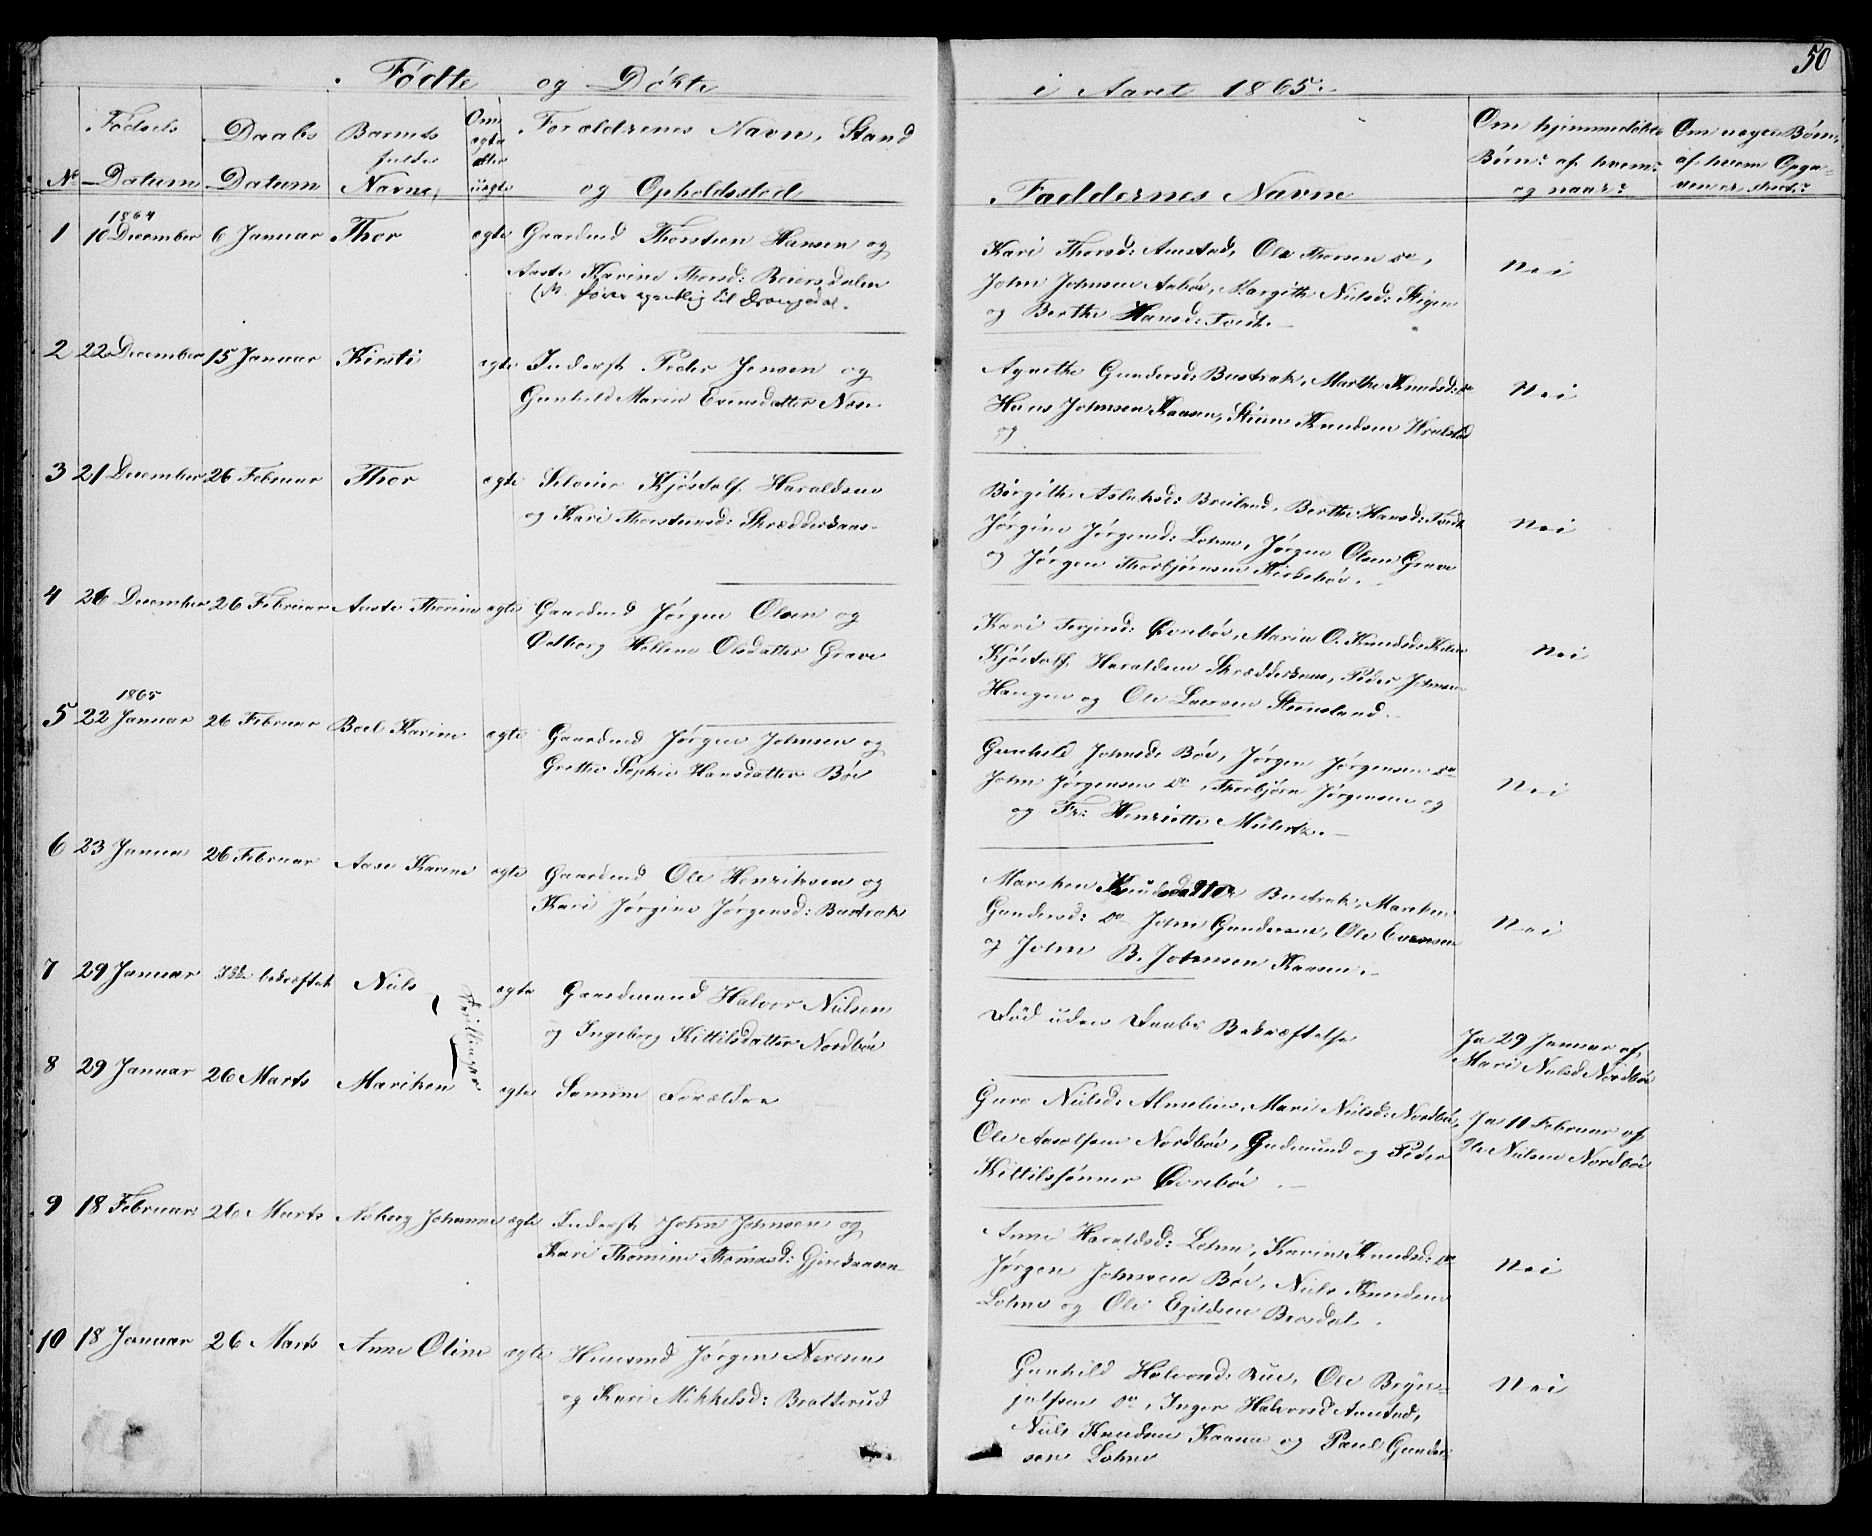 50
Födte og Döbte i Aaret 1865.
No
Fødsels Datum
Daabs Datum
Barnets fulde Navne,
Om ægte eller uægte
Forældrenes Navn, Stand og Opholdssted
Faddernes Navne
Om hjemmedöbte Börn: af hvem og naar?
Om uægte Börn, af hvem Opgaven er skeet?
1
1864
10 December
6 Januar
Thor
ægte
Gaardmd Thorsten Hansen og
Aaste Karine Thorsd: Beiersdalen
til Drangedal.
Kari Thorsd: Aanstad, Ole Thorsen do,
John Johnsen Aabøe, Margith Nielsd: Stigen
og Berthe Hansd: Tvedt.
Nei
2
22 December
15 Januar
Kirsti
ægte
Inderst Peder Jensen og
Gunhild Marie Evensdatter Næs
Agnethe Gundersd: Bustrak, Marthe Knudsd: do
Hans Johnsen Kaasen, Knudsen
og
Nei
3
21 December
26 Februar
Thor
ægte
Selveier Kjöstolf Haraldsen
og Kari Thorstensd: Skrædderkaas
Birgith Aslaksd: Breiland, Berthe Hansd: Tvedt
Jörgine Jörgensd: Lohne, Jörgen Olsen Grave
og Jörgen Thorbjörnsen Kirkebøe.
Nei
4
26 December
26 Februar
Aaste Thorine
ægte
Gaardmd Jörgen Olsen og
Hellene Olsdatter Grave
Kari Terjersd: Övrebøe, Maria O. Knudsd:
Kjöstolf Haraldsen Skrædderkaas, Peder Johnsen
Haugen og Ole Larsen Steensland.
Nei
5
1865
22 Januar
26 Februar
Boel Karine
ægte
Gaardmd Jörgen Johnsen og
Grethe Sophie Hansdatter Böe
Gunhild Johnsd: Böe, Jörgen Jörgensen do
John Jörgensen do, Thorbjörn Jörgensen og
og Fr: Henriette Mülertz.
Nei
6
23 Januar
26 Februar
Aase Karine
ægte
Gaardmd Ole Henriksen og
Kari Jörgine Jörgensd: Bustrak
Mareken Knudsdatter Bustrak, Mareken
Gundersd: do John Gundersen, Ole Evensen
og John B. Johnsen Kaasen.
Nei
7
29 Januar
Ikke bekræftet
Niels
Tvillinger
ægte
Gaardmand Halvor Nielsen
og Ingeborg Kittilsdatter Nordböe
Död uden Daabs Bekræftelse
Ja 29 Januar af
Mari Nielsd Nordböe
8
29 Januar
26 Marts
Mariken
ægte
Samme Forældre
Guro Nielsd: Almelien, Mari Nielsd: Nordböe,
Ole Nordböe, Gudmund og Peder
Kittilssönner Övreböe.
Ja 11 Februar af
Ole Nielsen Nordböe
9
18 Februar
26 Marts
Aaborg Johanne
ægte
Inderst John Johnsen og
Kari Thomine Thomasd:
Anne Haraldsd: Lohne, Karin Knudsd: do
Jörgen Johnsen Böe, Niels Knudsen
Lohne og Ole Egildsen Brosdal.
Nei
10
18 Januar
26 Marts
Anne Oline
ægte
Huusmd Jörgen Næresen
og Kari Mikkelsd: Bratterud
Gunhild Halvorsd: Rue, Ole Bryn-
julfsen do, Inger Halvorsd Aanstad,
Niels Knudsen Kaasen og Paul Gunder-
sen Lohne
Nei